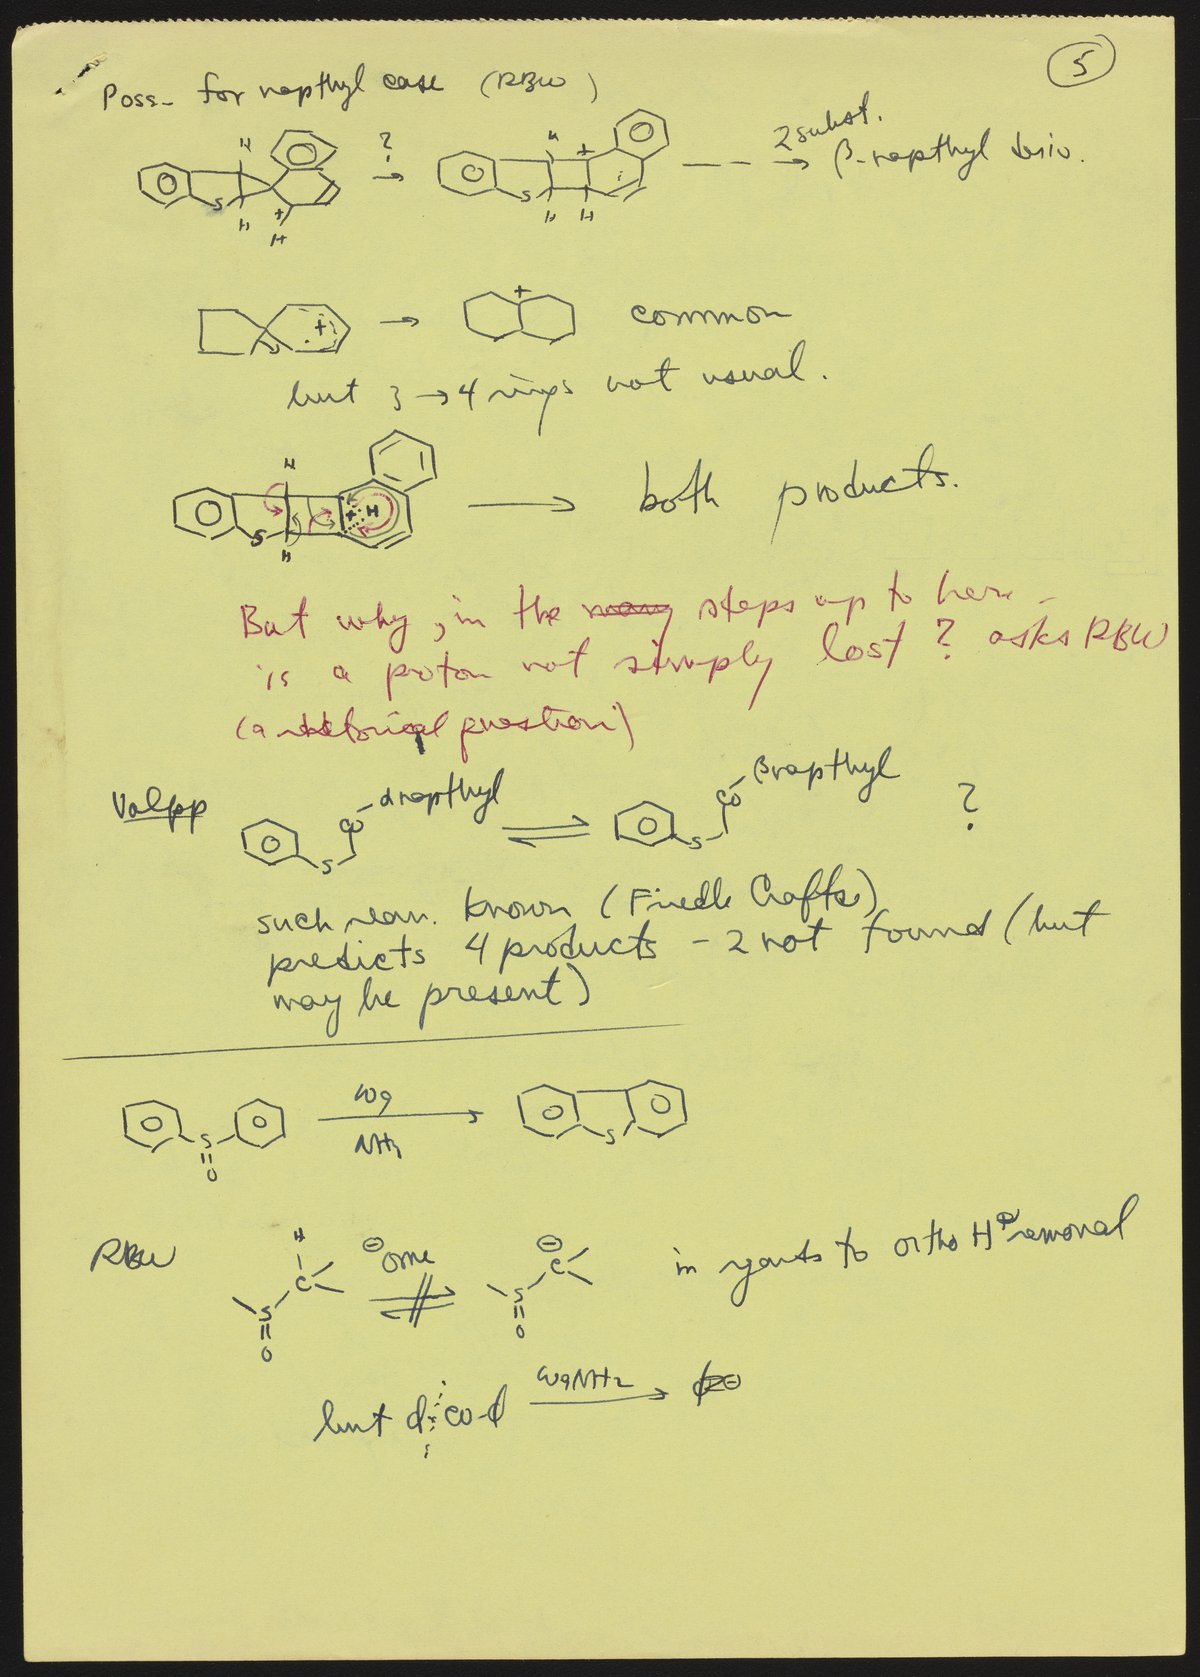 5
Poss. for napthyl case (RBW)
H ? H + 2 subst.
S S β-napthyl deriv.
H + H H H
+ → + common
but 3 → 4 rings not usual.
H
+ H → both products.
S
H
But why, in the many steps up to here –
is a proton not simply lost? asks RBW
(a rhetorical question)
Valpp
CO – αnapthyl ⇌ CO – βnapthyl ?
S S
such rearr. known (Friedle Crafts)
predicts 4 products – 2 not found (but
may be present)
S = O
NH₃
S
RBW
H C S = O ⊖OMe ⊖ C S = O in regards to ortho H⊕ removal
but ϕ CO-ϕ NH₂ → ϕ⊖